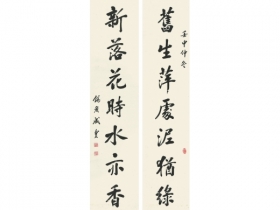 壬申仲冬
舊生萍處泥猶綠
新落花時水亦香